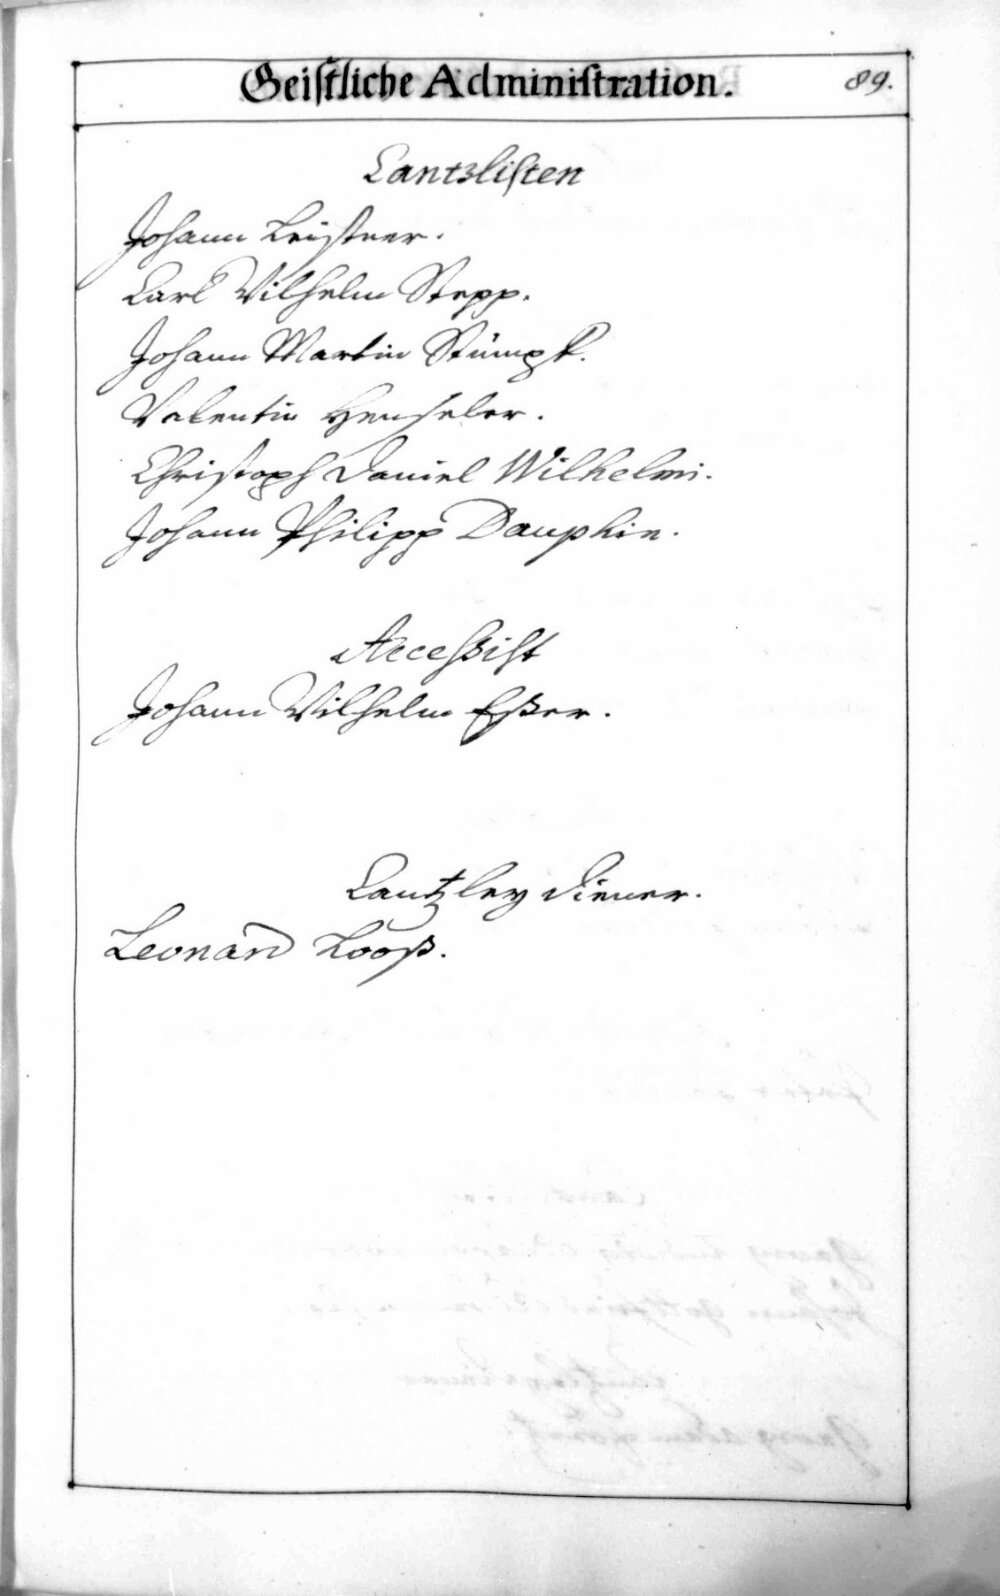 Geistliche Administration. 89.
Cantzlisten
Johann Leistner.
Carl Wilhelm Stepp.
Johann Martin Stümpf.
Valentin Henseler.
Christoph Daniel Wilhelmi.
Johann Philipp Dauphin.
Accessist
Johann Wilhelm Eßer.
Cantzley Diener.
Leonard Looß.